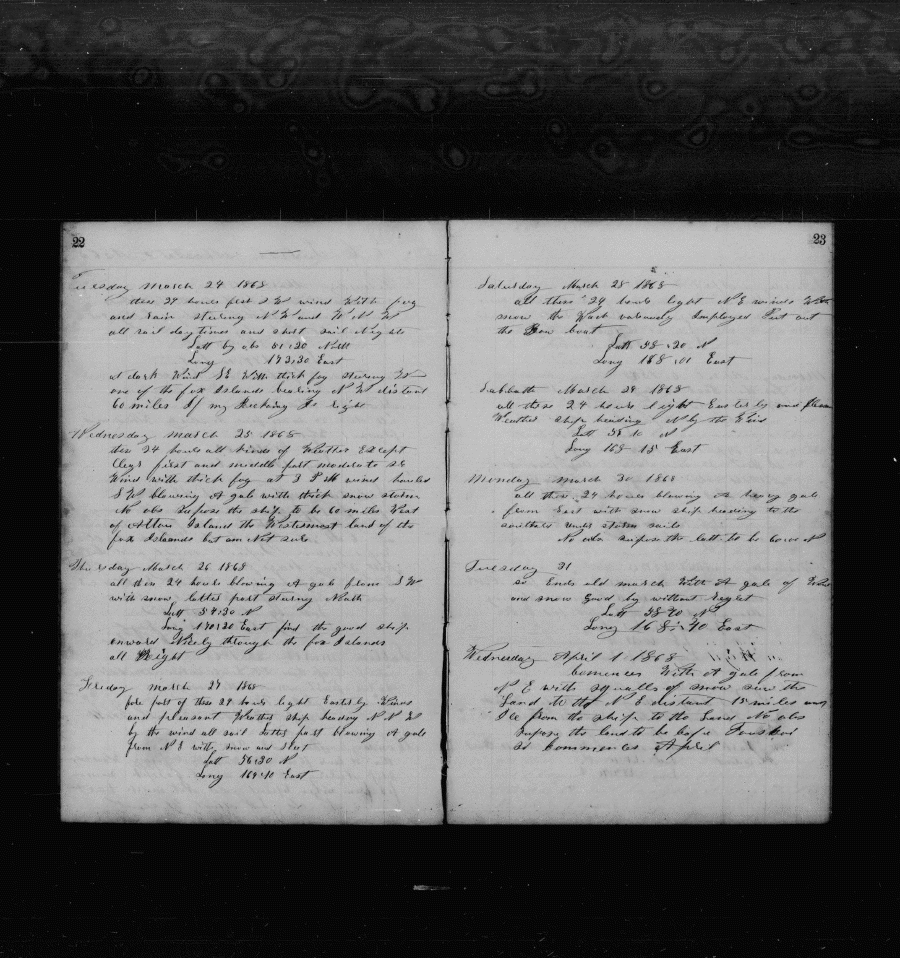 22
Tuesday March 24 1868
these 24 hours first S W wind With fog
and rain stearing N W and W N W
all sail day times and short sail Nights
Latt by obs 51:20 North
Long 173:30 East
at dark Wind SE With thick fog stearing
one of the fox Islands bearing N W distant
60 miles If my Reckning Is right
Wednesday March 25 1868
these 24 hours all kinds of Weather Except
Clear first and middle part moderate SE
Wind with thick fog at 3 P M wind hauled
S W blowing A gale with thick snow storm
No obs supose the ship to be 60 miles West
of Attou Island the Westernmost land of the
fox Islands but am Not sure
Thursday March 26 1868
all these 24 hours blowing A gale from S W
with snow latter part stearing North
Latt 54:30 N
Long 170:20 East find the good ship
onward Nicely through the fox Islands
all Right
Friday March 27 1868
fore part of these 24 hours light Easterly Winds
and pleasant Weather ship heading N N E
by the wind all sail latter part blowing A gale
from N E with snow and sleet
Latt 56:30 N
Long 169:10 East
23
Saturday March 28 1868
all these 24 hours light N E winds With
snow the Watch variously Imployed Put out
the Bow boat
Latt 58:20 N
Long 168:01 East
Sabbath March 29 1868
all these 24 hours light Easterly and
Weather ship heading N by the Wind
Latt 10 N
Long 168 15 East
Monday March 30 1868
all these 24 hours blowing A heavy gale
from East with snow ship heading to the
southard under storm sails
No obs supose the latt to be N
Tuesday 31
so Ends old march With A gale of
and snow Good by without regret
Latt 58:40 N
Long 168:40 East
Wednesday April 1 1868
Comences With A gale from
N E with squalls of snow saw the
Land to the N E distant 15 miles
Ice from the ship to the Land No obs
supose the land to be Cape
so Commences April